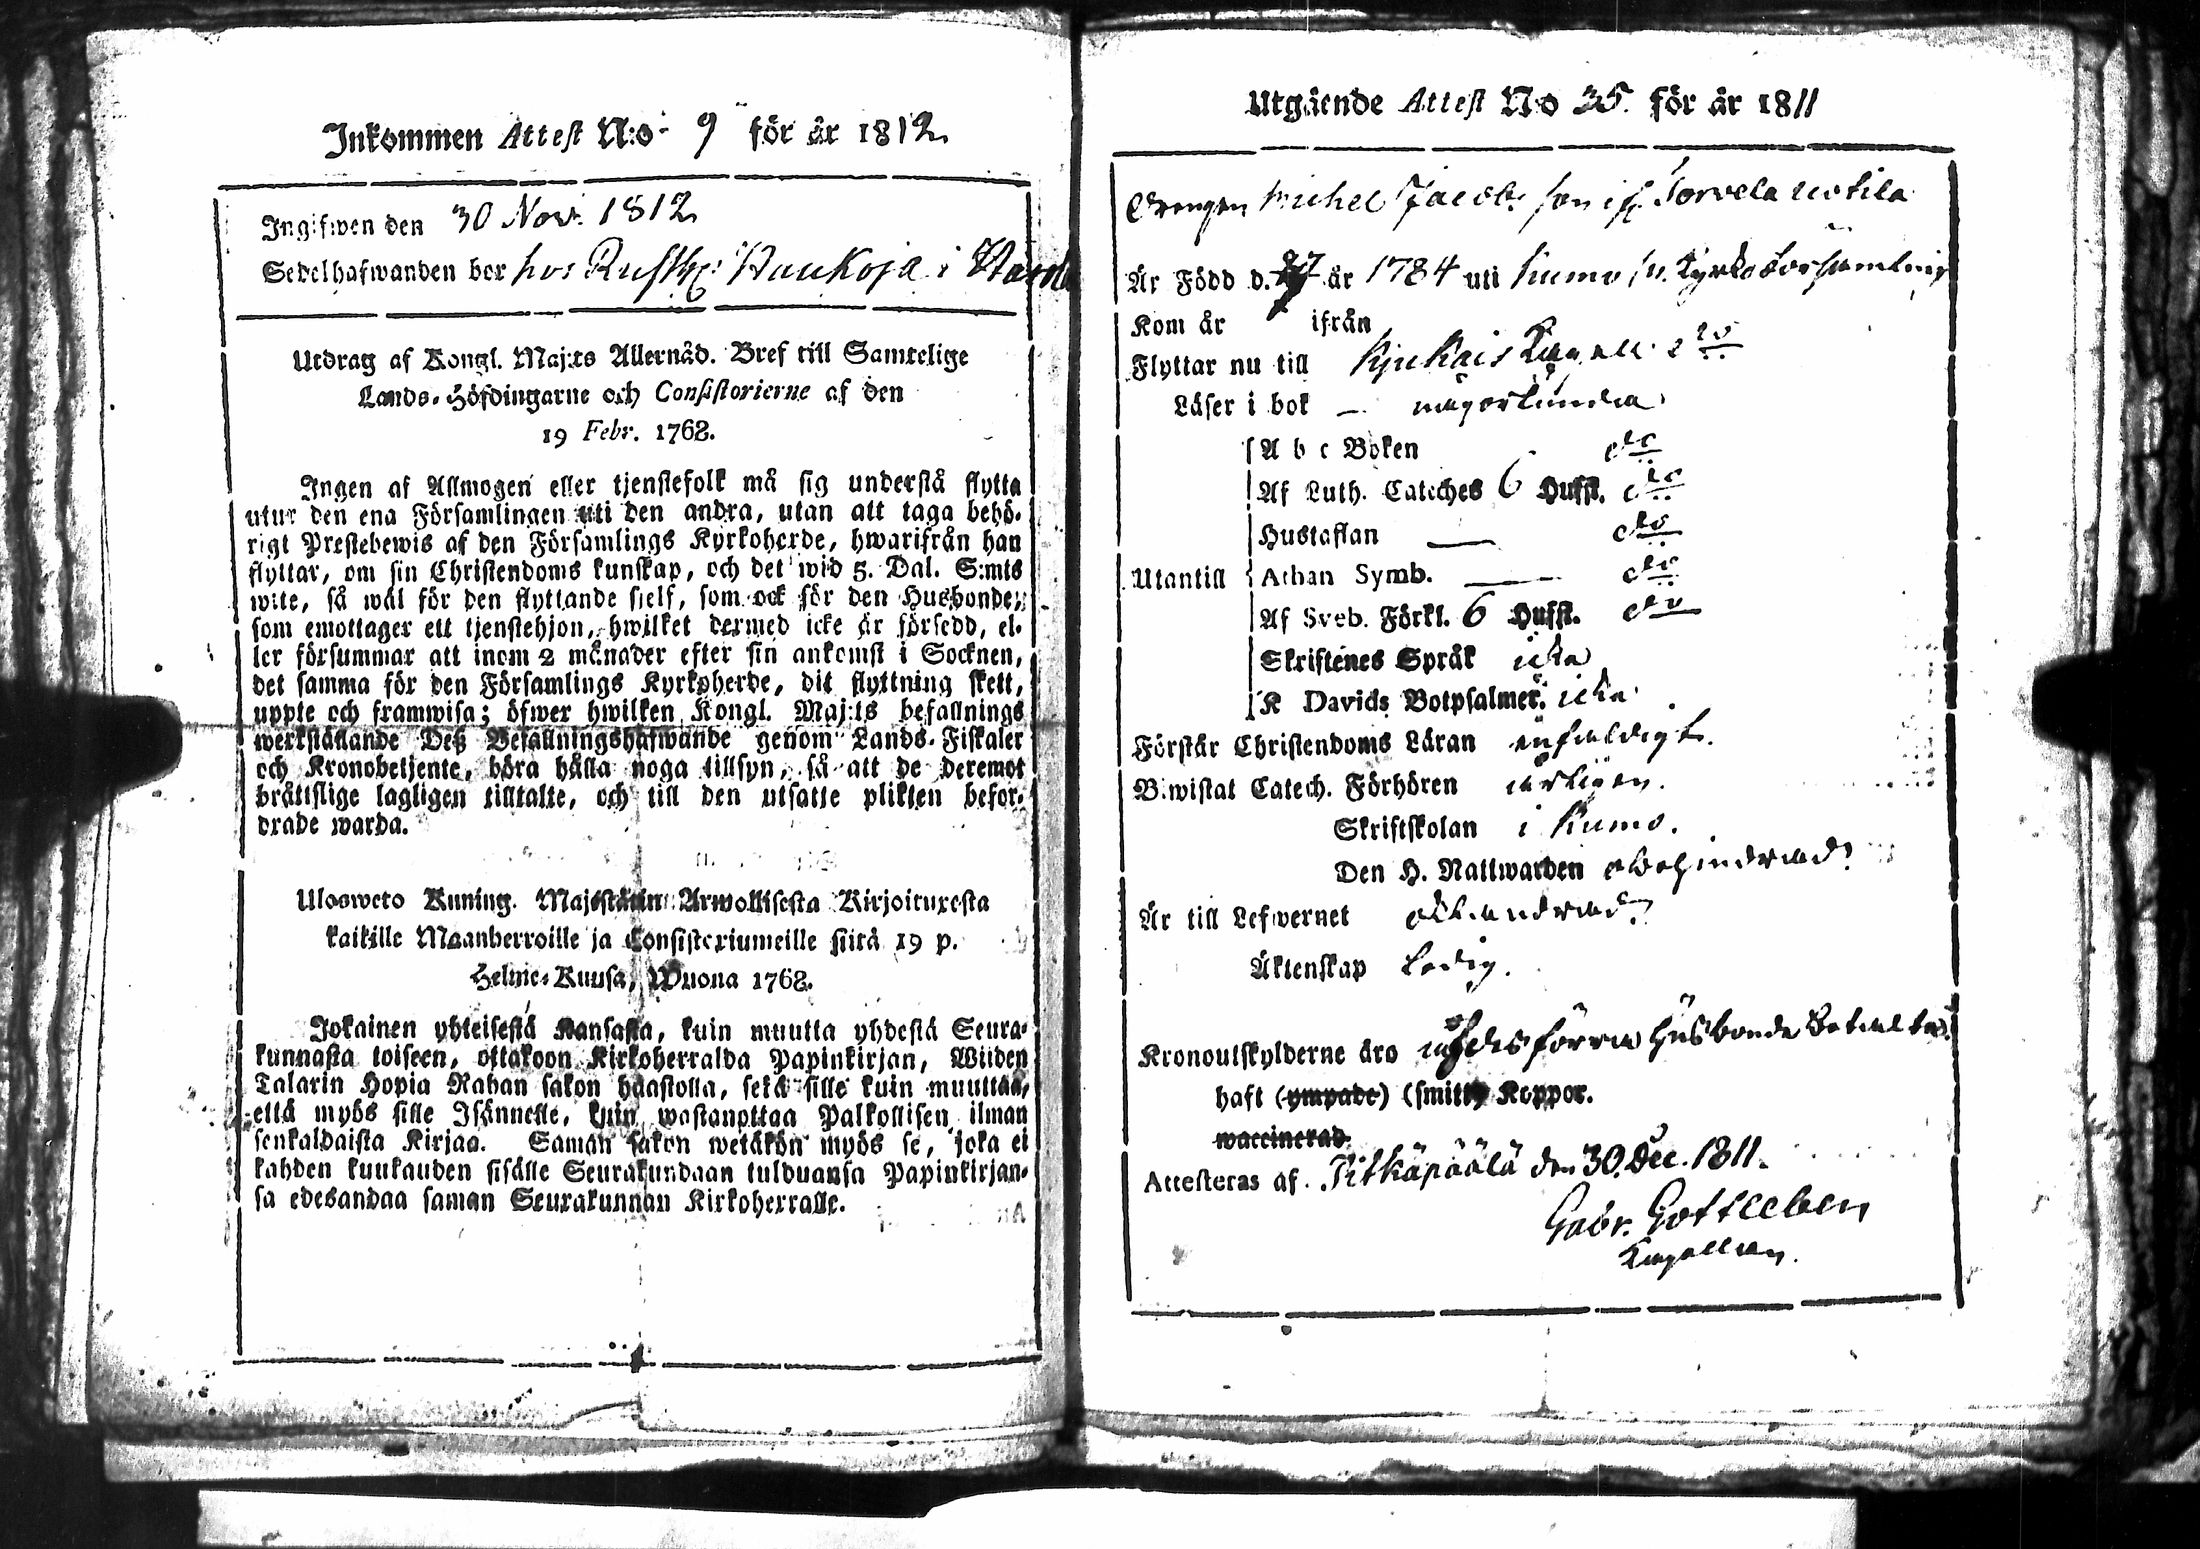 Inkommen Attest N:o 9 för år 1812
Ingifwen den 30 Nov. 1812
Sedelhafwanden bor hos Rusth: Haukoja i
Utdrag af Kongl. Maj:ts Allernåd. Bref till Samtelige
Lands-Höfdingarne och Consistorierne af den
19 Febr. 1768.
Ingen af Allmogen eller tjenstefolk må sig understå flytta
utur den ena Församlingen uti den andra, utan att taga behö-
rigt Prestebewis af den Församlings Kyrkoherde, hwarifrån han
flyttar, om sin Christendoms kunskap, och det wid 5. Dal. S:mts
wite, så wäl för den flyttande sjelf, som ock för den Husbonde,
som emottager ett tjenstehjon, hwilket dermed icke är försedd, el-
ler försummar att inom 2 månader efter sin ankomst i Socknen,
det samma för den Församlings Kyrkoherde, dit flyttning skett,
uppte och framwisa; öfwer hwilken Kongl. Maj:ts befallnings
werkställande Deß Befallningshafwande genom Lands-Fiskaler
och Kronobetjente, böra hålla noga tillsyn, så att de deremot
bråttslige lagligen tilltalte, och till den utsatte plikten befor-
drade warda.
Ulosweto Kuning. Majestätin Arwollisesta Kirjoituxesta
kaikille Maanherroille ja Consistoriumeille siitä 19 p.
Helme-Kuusa, Wuona 1768.
Jokainen yhteisestä Kansasta, kuin muutta yhdestä Seura-
kunnasta toiseen, ottakoon Kirkoherralda Papinkirjan, Wiiden
Talarin Hopia Rahan sakon haastolla, sekä sille kuin muuttaa,
että myös sille Isännelle, kuin wastanottaa Palkollisen ilman
senkaldaista Kirjaa. Saman sakon wetäkön myös se, joka ei
kahden kuukauden sisälle Seurakundaan tulduansa Papinkirjan-
sa edesandaa saman Seurakunnan Kirkoherralle.
Utgående Attest No 35. för år 1811
Drengen Michel Jacobs son ifr. Sorvela Uotila
Är Född d. 27 år 1784 uti Kumo Kyrkoförsamling
Kom år ifrån
Flyttar nu till Kjukais Kapell
Läser i bok — någorlunda
A b c Boken do
Af Luth. Cateches 6 Hufst. do
Hustaflan — do
Utantill Athan Symb. — do
Af Sveb. Förkl. 6 Hufst. do
Skriftenes Språk icke
K Davids Botpsalmer. icke
Förstår Christendoms Läran enfaldigt.
Biwistat Catech. Förhören årligen.
Skriftskolan i Kumo.
Den H. Nattwarden obehindrad
Är till Lefwernet oklandrad
Äktenskap Ledig.
Kronoutskylderne äro af des förra Husbonde betalta
haft (ympade) (smitt) Koppor.
waccinerad.
Attesteras af Pitkäpäälä den 30. Dec. 1811.
Gabr. Gottleben
Kapellan.